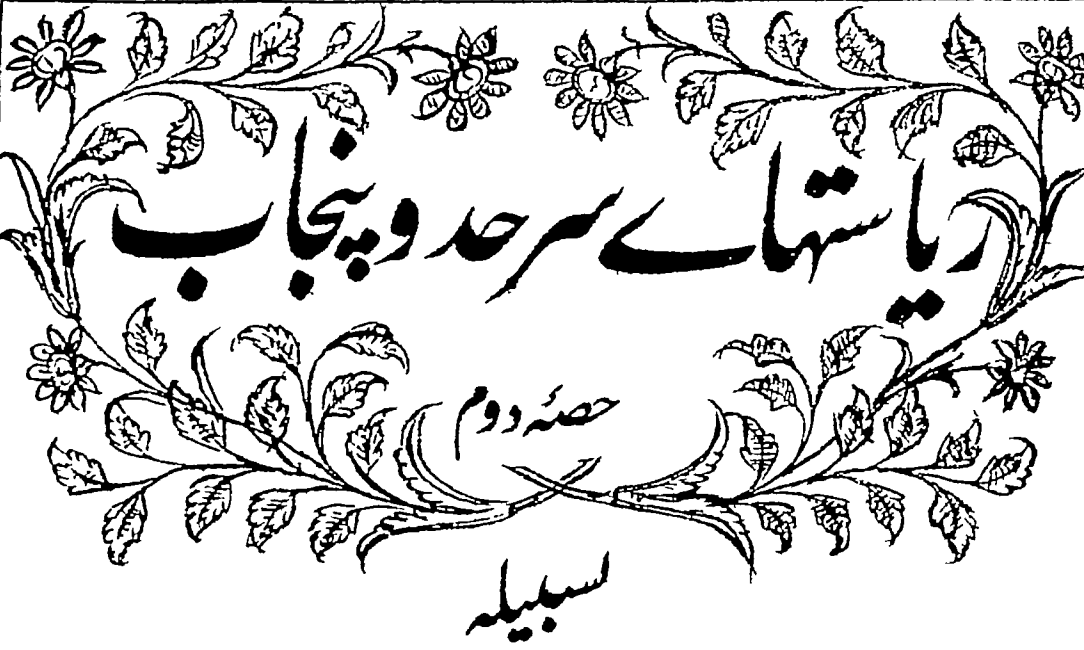 ریاستہاے سرحد و پنجاب
حصۂ دوم
لسبیلہ